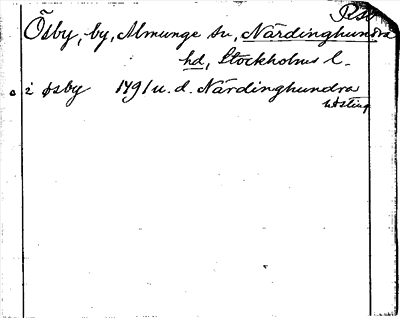 Ösby, by, Almunge sn, Närdinghundra
hd, Stockholms l.
i øsby 1791 u. d. Närdinghundra
hösting